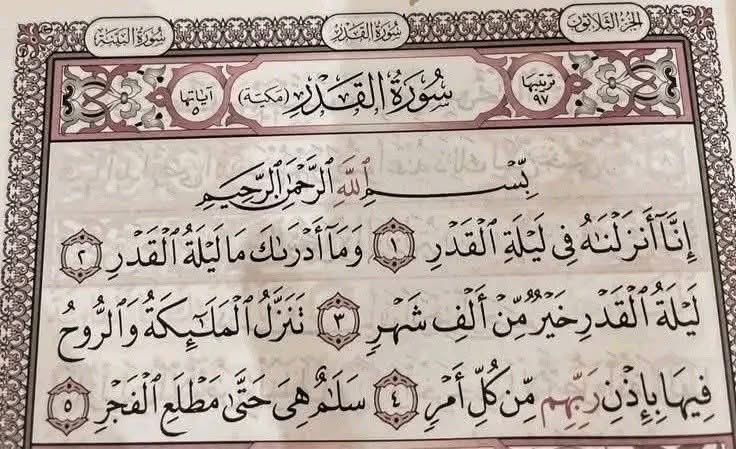 الجزء الثلاثون
سورة القدر
سورة البينة
ترتيبها ٩٧
سُورَةُ القَدْرِ (مكية)
آياتها ٥
بِسْمِ ٱللَّهِ ٱلرَّحْمَٰنِ ٱلرَّحِيمِ
إِنَّآ أَنزَلْنَٰهُ فِى لَيْلَةِ ٱلْقَدْرِ ١ وَمَآ أَدْرَىٰكَ مَا لَيْلَةُ ٱلْقَدْرِ ٢
لَيْلَةُ ٱلْقَدْرِ خَيْرٌ مِّنْ أَلْفِ شَهْرٍ ٣ تَنَزَّلُ ٱلْمَلَٰٓئِكَةُ وَٱلرُّوحُ
فِيهَا بِإِذْنِ رَبِّهِم مِّن كُلِّ أَمْرٍ ٤ سَلَٰمٌ هِىَ حَتَّىٰ مَطْلَعِ ٱلْفَجْرِ ٥